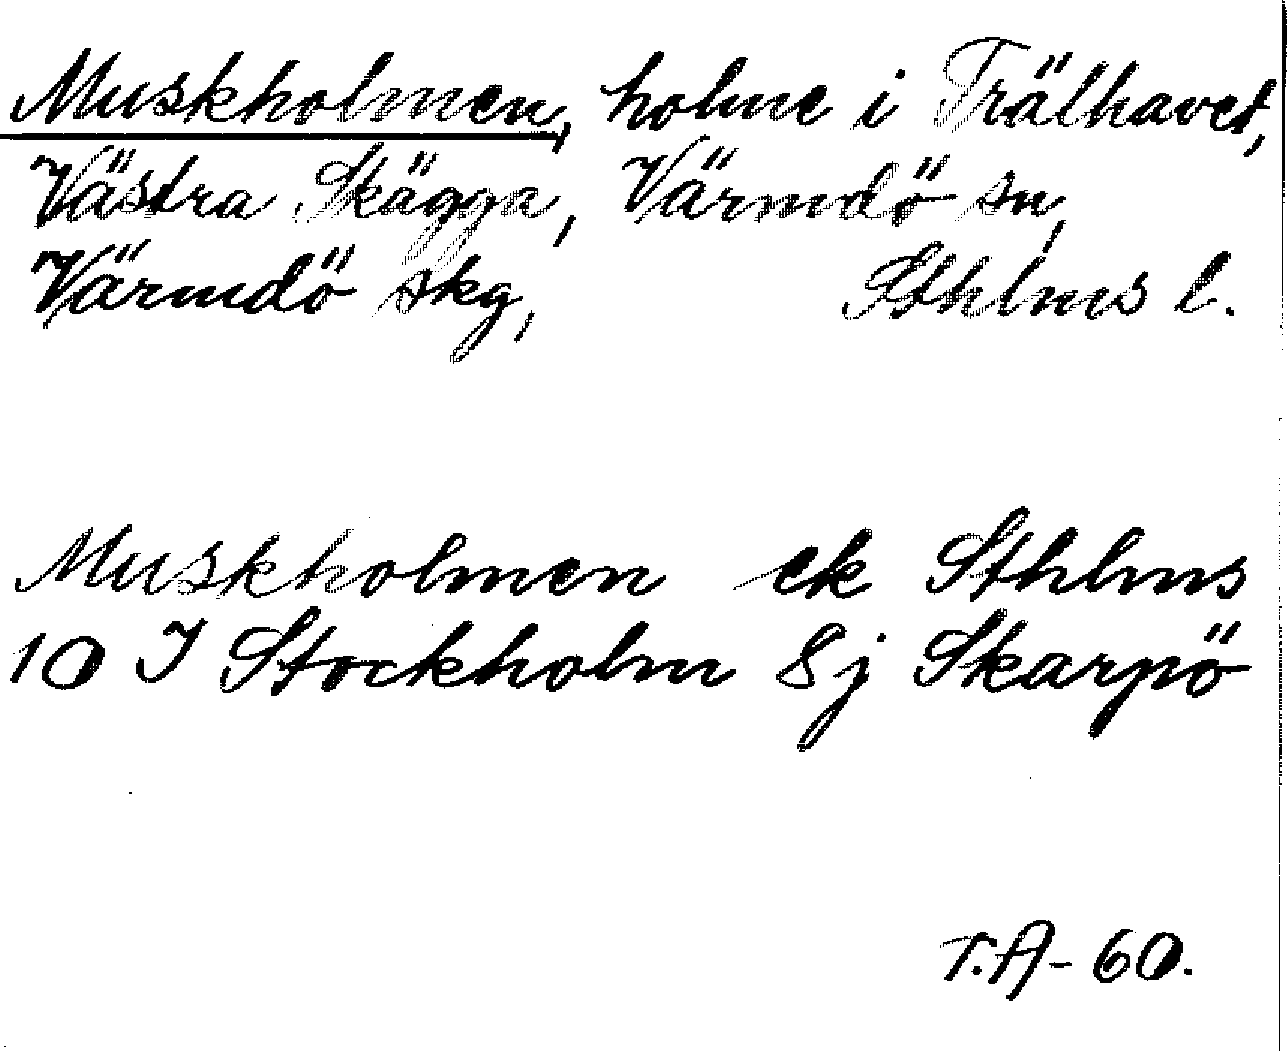 Muskholmen, holme i Trälhavet,
Västra Skägga, Värmdö sn,
Värmdö skg, Sthlms l.
Muskholmen ek Sthlms
10 I Stockholm 8j Skarpö
T.A-60.